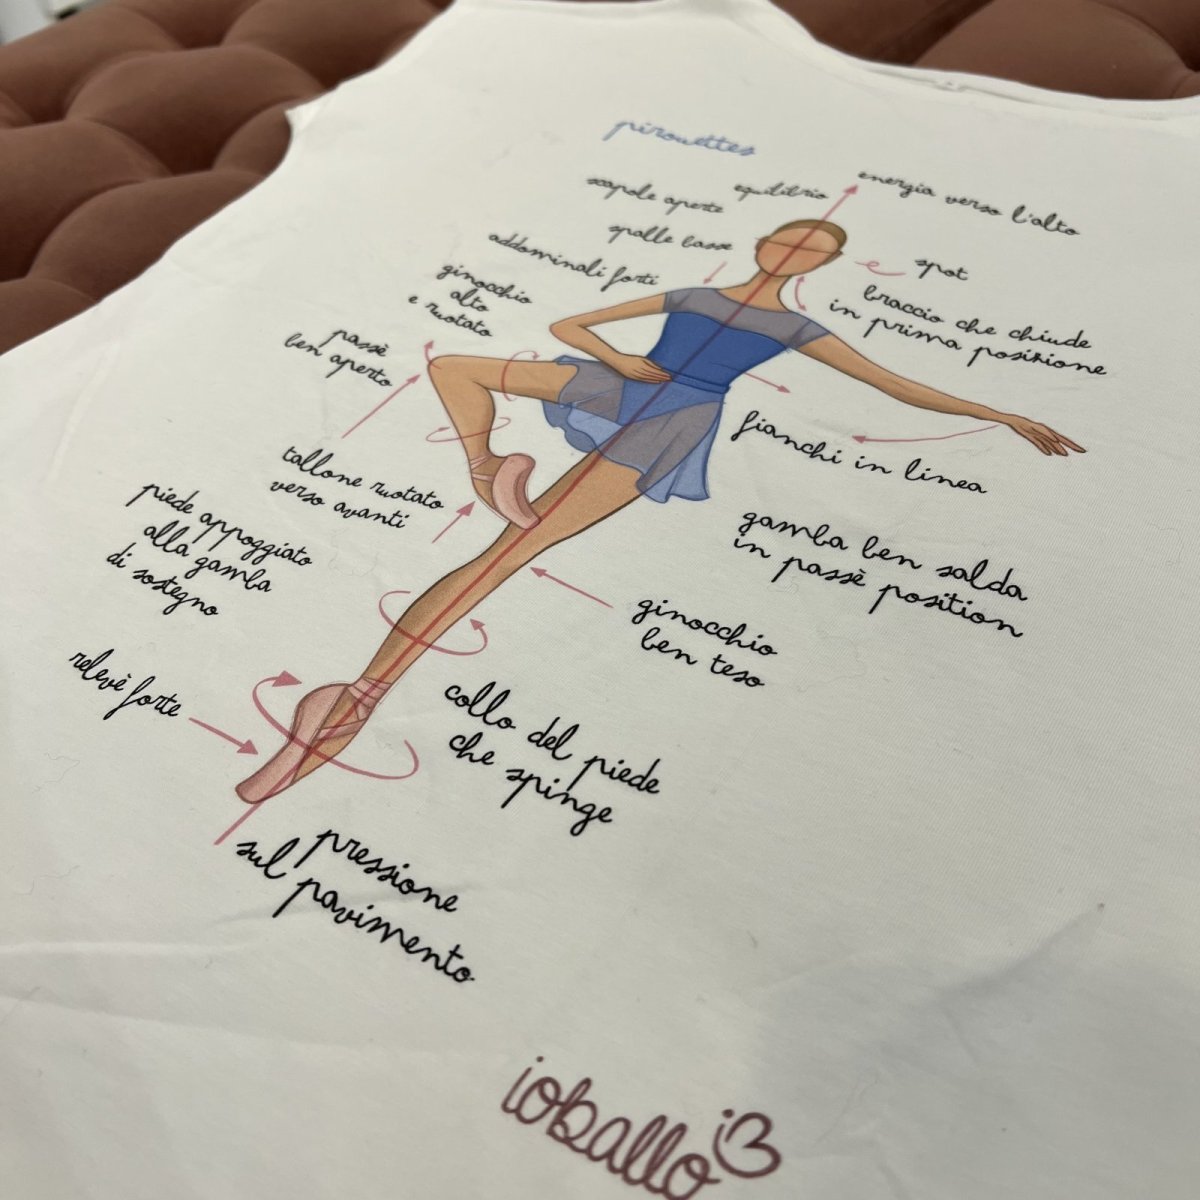 pirouettes
equilibrio
energia verso l'alto
scapole aperte
spalle basse
spot
addominali forti
braccio che chiude
in prima posizione
ginocchio
alto
e ruotato
passè
ben aperto
fianchi in linea
tallone ruotato
verso avanti
gamba ben salda
in passè position
piede appoggiato
alla gamba
di sostegno
ginocchio
ben teso
relevè forte
collo del piede
che spinge
pressione
sul pavimento
ioballo